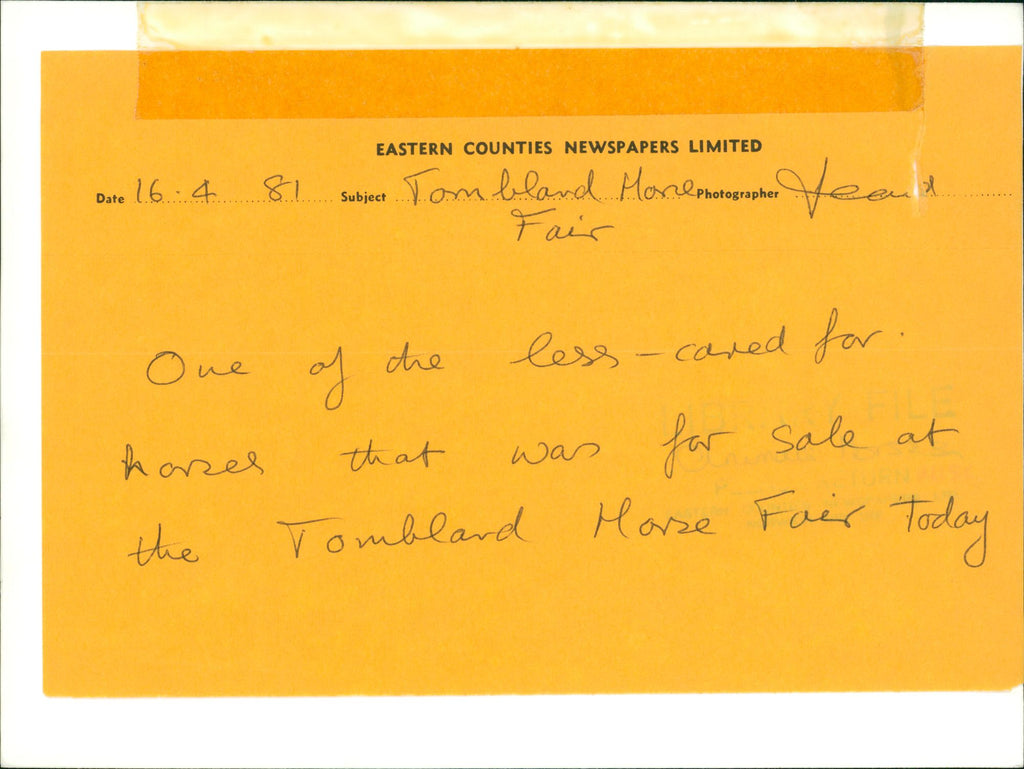 EASTERN COUNTIES NEWSPAPERS LIMITED
Date 16.4 81 Subject Tombland Horse Photographer
Fair
One of the less-cared for.
horses that was for sale at
the Tombland Horse Fair Today
FILE